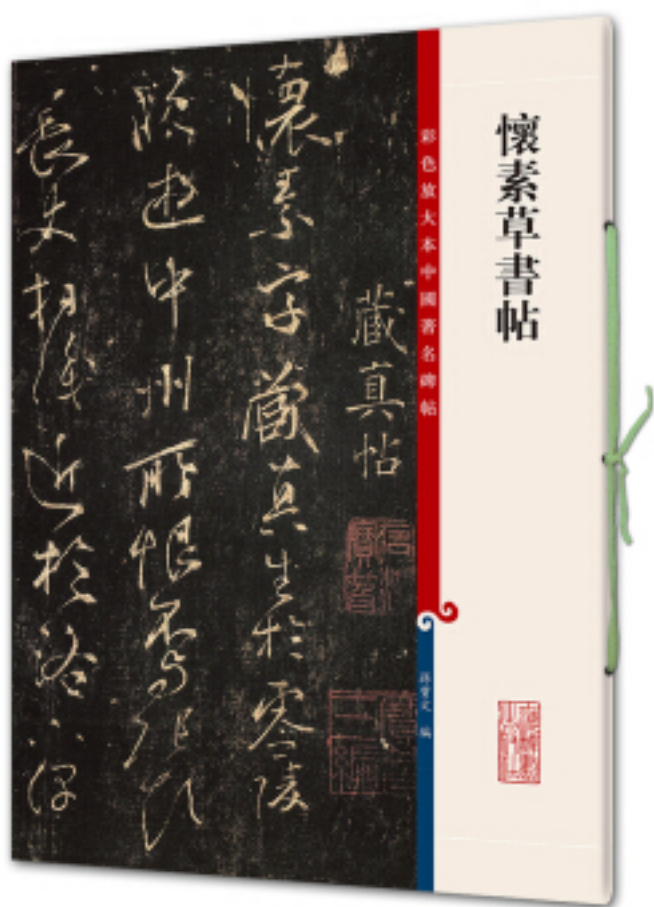 懷素草書帖
彩色放大本中國著名碑帖
孫寶文 編
藏真帖
懷素字藏真生於零陵
晚遊中州所恨不與張顛
長史相識近於洛下偶